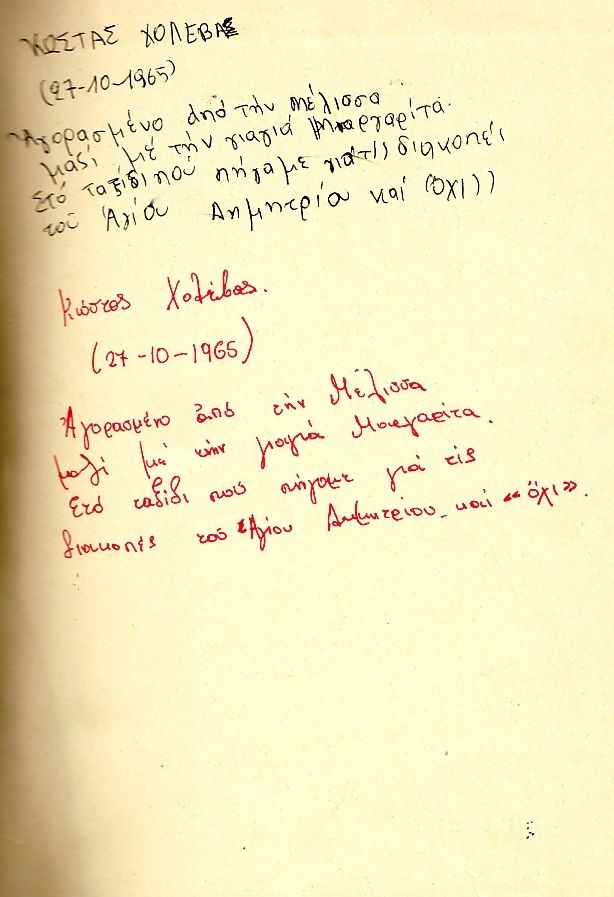 ΚΩΣΤΑΣ ΧΟΛΕΒΑΣ
(27-10-1965)
Ἀγορασμένο ἀπό τήν Μέλισσα
μαζί μέ τήν γιαγιά Μαργαρίτα.
Στό ταξίδι πού πήγαμε γιά τίς διακοπές
τοῦ Ἁγίου Δημητρίου καί (ΌΧΙ))
Κώστας Χολέβας.
(27-10-1965)
Ἀγορασμένο ἀπό τήν Μέλισσα
μαζί μέ τήν γιαγιά Μαργαρίτα.
Στό ταξίδι πού πήγαμε γιά τίς
διακοπές τοῦ Ἁγίου Δημητρίου καί «ὄχι».